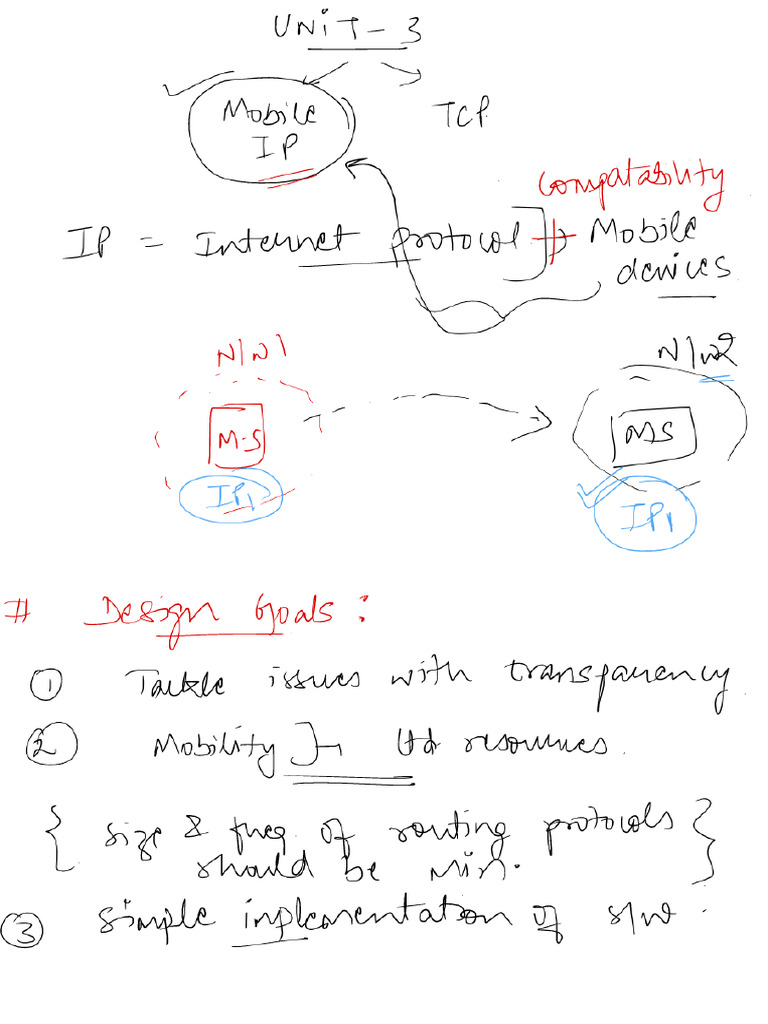 UNIT-3
Mobile
IP
TCP
Compatability
IP = Internet protocol
Mobile
devices
N/W1
N/W2
M-S
MS
IP1
IP1
# Design Goals:
① Tackle issues with transparency
② Mobility } → Ltd resources.
{ size & freq. of routing protocols
should be min. }
③ simple implementation of s/w.